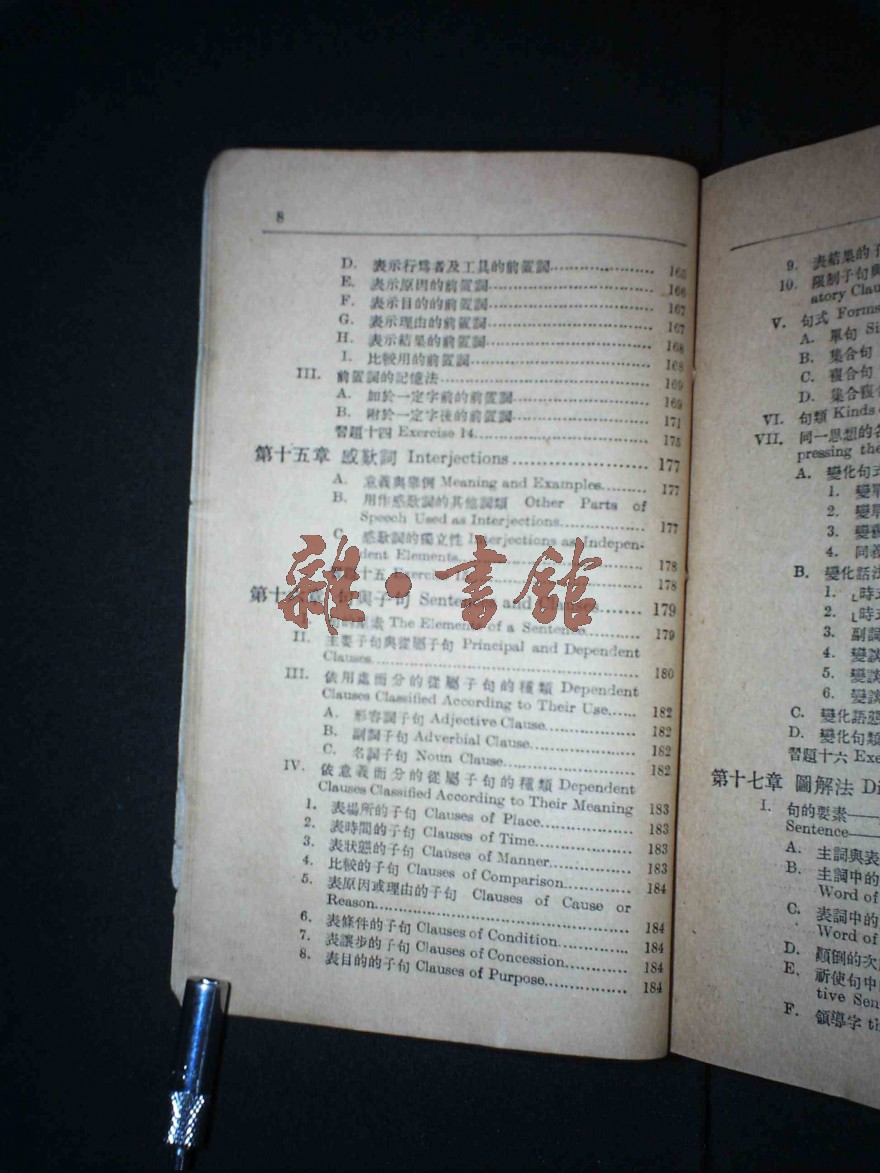 8
D. 表示行爲者及工具的前置詞 165
E. 表示原因的前置詞 166
F. 表示目的的前置詞 167
G. 表示理由的前置詞 167
H. 表示結果的前置詞 168
I. 比較用的前置詞 168
III. 前置詞的記憶法 169
A. 加於一定字前的前置詞 169
B. 附於一定字後的前置詞 171
習題十四 Exercise 14 175
第十五章 感歎詞 Interjections 177
A. 意義與舉例 Meaning and Examples 177
B. 用作感歎詞的其他詞類 Other Parts of
Speech Used as Interjections 177
C. 感歎詞的獨立性 Interjections as Indepen-
dent Elements 178
十五 178
第十 與子句 Sentences and Clauses 179
The Elements of a Sentence 179
II. 主要子句與從屬子句 Principal and Dependent
Clauses 180
III. 依用處而分的從屬子句的種類 Dependent
Clauses Classified According to Their Use 182
A. 形容詞子句 Adjective Clause 182
B. 副詞子句 Adverbial Clause 182
C. 名詞子句 Noun Clause 182
IV. 依意義而分的從屬子句的種類 Dependent
Clauses Classified According to Their Meaning 183
1. 表場所的子句 Clauses of Place 183
2. 表時間的子句 Clauses of Time 183
3. 表狀態的子句 Clauses of Manner 183
4. 比較的子句 Clauses of Comparison 184
5. 表原因或理由的子句 Clauses of Cause or
Reason 184
6. 表條件的子句 Clauses of Condition 184
7. 表讓步的子句 Clauses of Concession 184
8. 表目的的子句 Clauses of Purpose 184
雜·書館
9. 表結果的子
10. 限制子句與
atory Clau
V. 句式 Forms
A. 單句 Si
B. 集合句
C. 複合句
D. 集合複合
VI. 句類 Kinds
VII. 同一思想的各
pressing the
A. 變化句式
1. 變單
2. 變單
3. 變複
4. 同義
B. 變化話法
1. 時式
2. 時式
3. 副詞
4. 變談
5. 變談
6. 變談
C. 變化語態
D. 變化句類
習題十六 Exe
第十七章 圖解法 Di
I. 句的要素
Sentence
A. 主詞與表
B. 主詞中的
Word of
C. 表詞中的
Word of
D. 顚倒的次
E. 祈使句中
tive Sen
F. 領導字 th